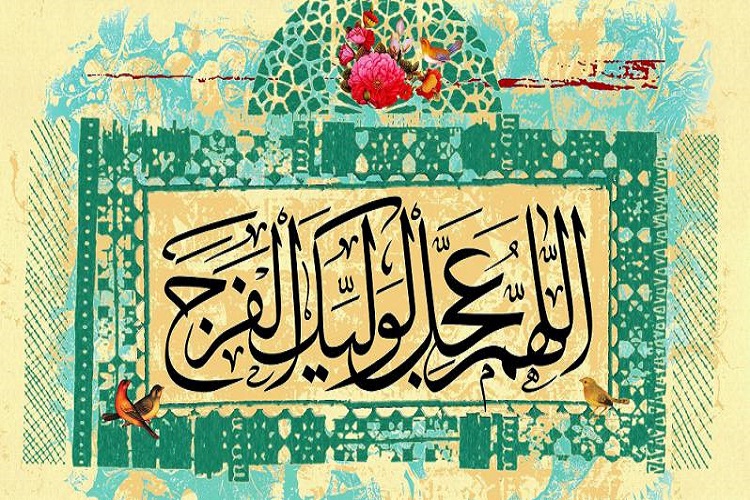 اللّهُمَّ عَجِّل لِوَلیِّکَ الْفَرَجَ